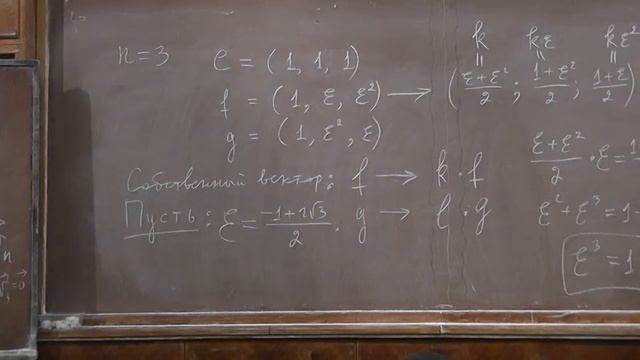 n=3 e = (1, 1, 1)
f = (1, ε, ε²) → ( (ε+ε²)/2 ; (1+ε²)/2 ; (1+ε)/2 )
k kε kε²
g = (1, ε², ε)
(ε+ε²)/2 · ε = 1
Собственный вектор: f → k·f
Пусть: ε = (-1+i√3)/2 . g → l·g
ε²+ε³=1
ε³=1